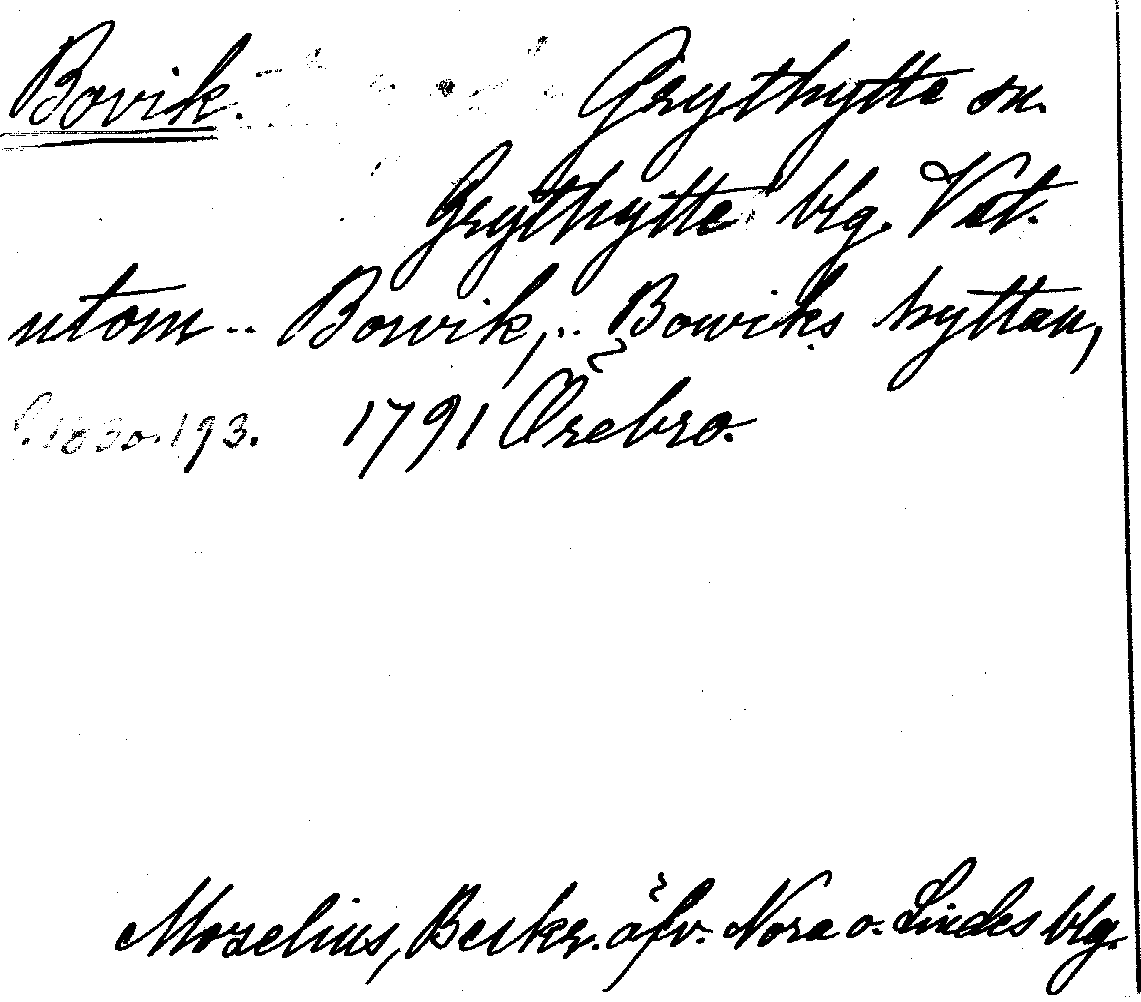 Bovik. Grythytte sn.
Grythytte blg. Väst.
utom .. Bowik, .. Bowiks hyttan,
S. 1830. 193. 1791 Örebro.
Morelius, Beskr. öfv. Nora o. Lindes blg.